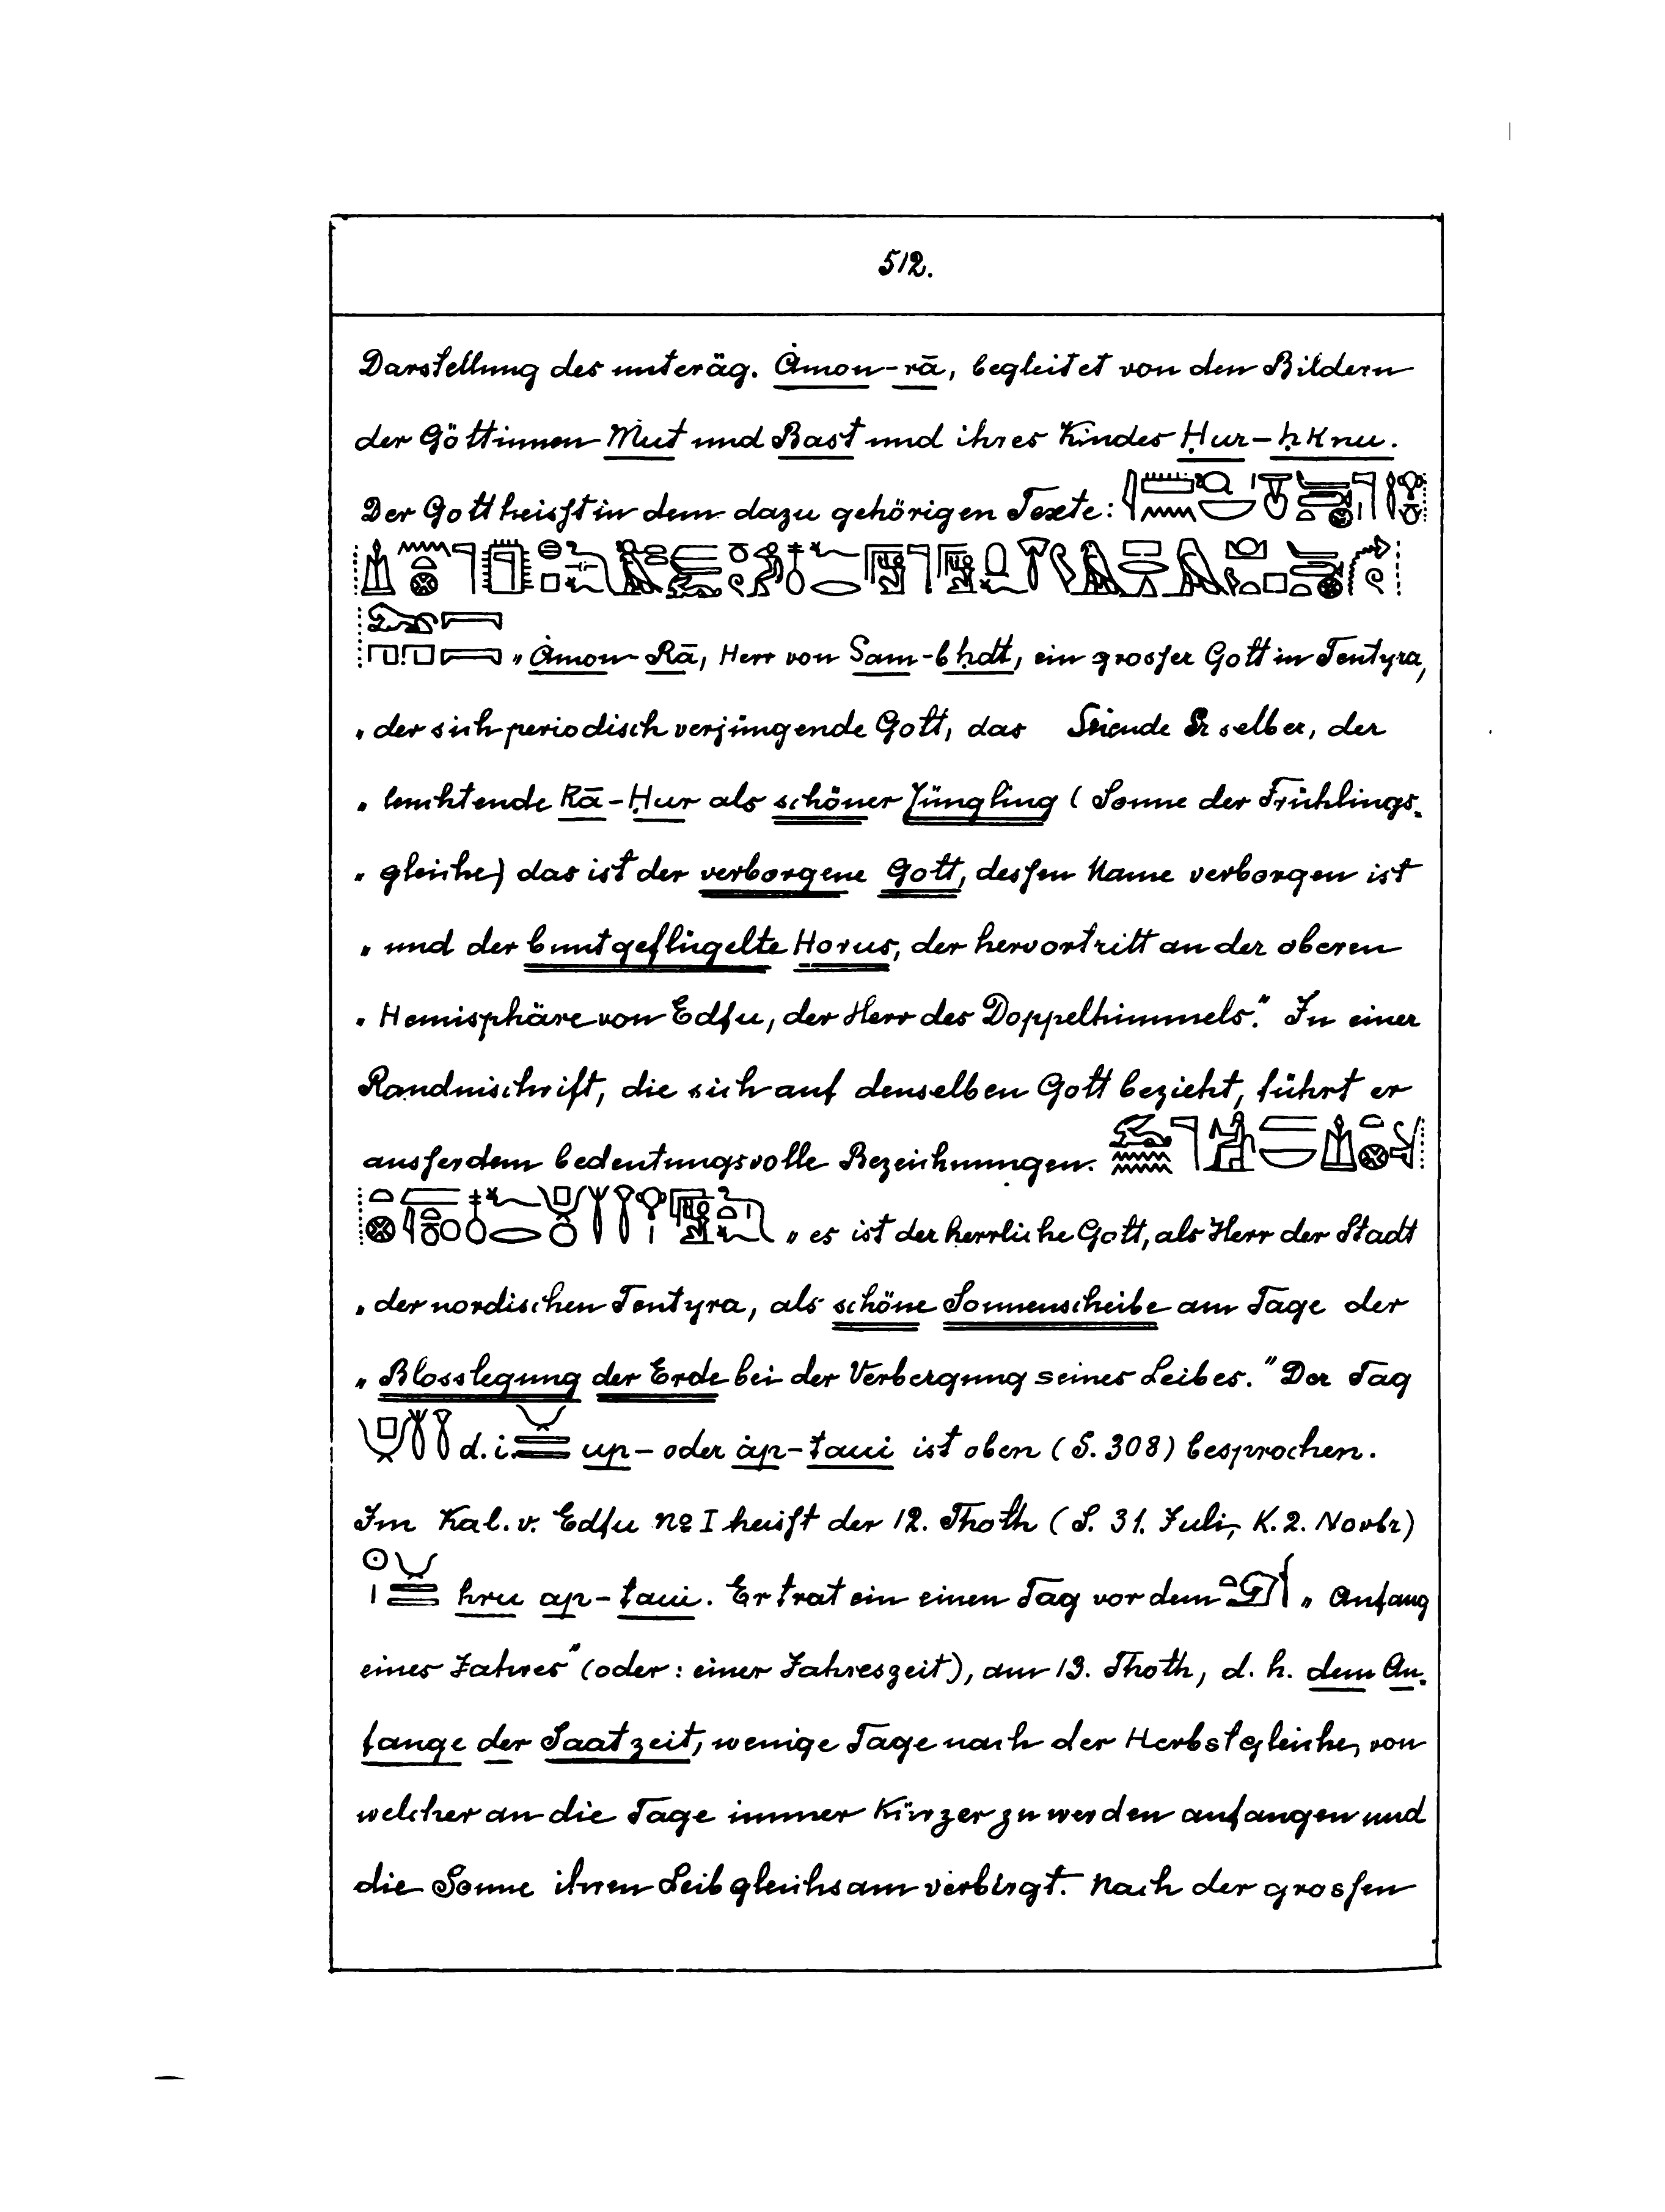 512.
Darstellung des unteräg. Ȧmon-rā, begleitet von den Bildern
der Göttinnen Mut und Bast und ihres Kindes Ḥur-ḥknu.
Der Gott heisst in dem dazu gehörigen Texte:
„Ȧmon-Rā, Herr von Sam-bḥdt, ein grosser Gott in Tentyra,
„der sich periodisch verjüngende Gott, das Seiende Er selber, der
„leuchtende Rā-Ḥur als schöner Jüngling (Sonne der Frühlings-
„gleiche) das ist der verborgene Gott, dessen Name verborgen ist
„und der buntgeflügelte Horus, der hervortritt an der oberen
„Hemisphäre von Edfu, der Herr des Doppelhimmels.“ In einer
Randinschrift, die sich auf denselben Gott bezieht, führt er
ausserdem bedeutungsvolle Bezeichnungen.
„es ist der herrliche Gott, als Herr der Stadt
„der nordischen Tentyra, als schöne Sonnenscheibe am Tage der
„Blosslegung der Erde bei der Verbergung seines Leibes.“ Der Tag
d. i. up- oder ȧp-taui ist oben (S. 308) besprochen.
Im Kal. v. Edfu No I heisst der 12. Thoth (S. 31. Juli, K. 2. Novbr)
hru ap-taui. Er trat ein einen Tag vor dem „Anfang
eines Jahres“ (oder: einer Jahreszeit), am 13. Thoth, d. h. dem An-
fange der Saatzeit, wenige Tage nach der Herbstgleiche, von
welcher an die Tage immer kürzer zu werden anfangen und
die Sonne ihren Leib gleichsam verbirgt. Nach der grossen